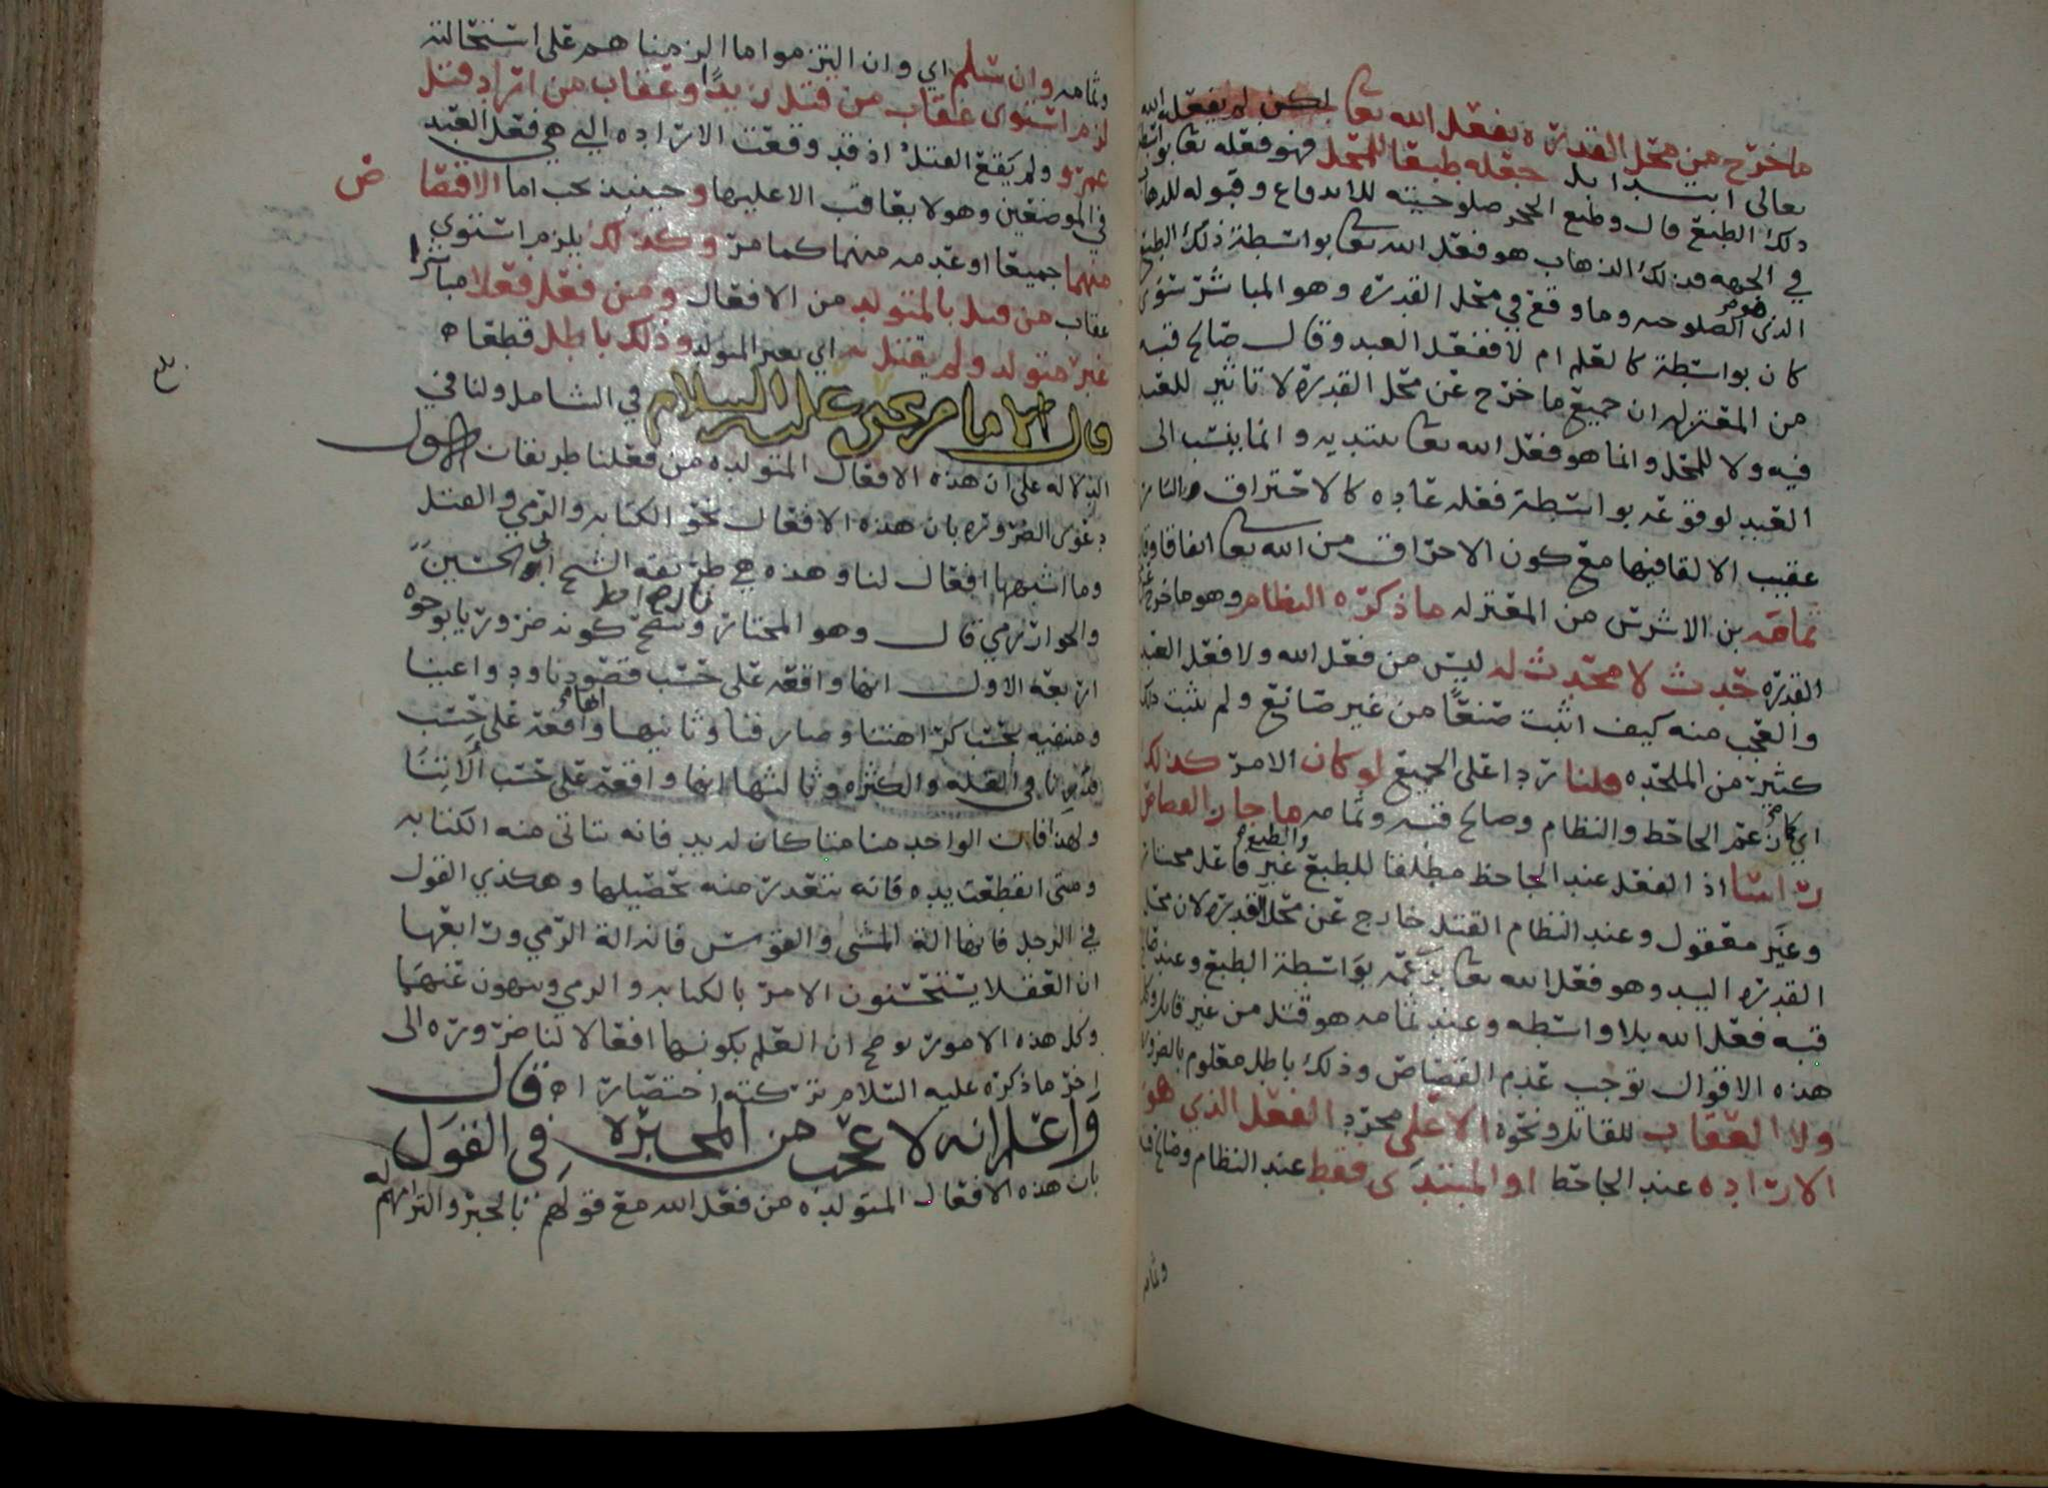 ما خرج من محل القدره بفعل الله تعا لكن لم يفعله الله
تعالى ابتدا بل جعله طبعا للمحل فهو فعله تعا بواسطة
ذلك الطبع قال وطبع الحجر صلوحيته للاندفاع وقبوله للذهاب
في الجهه فذلك الذهاب هو فعل الله تعا بواسطة ذلك الطبع
الذي هو الصلوحيه وما وقع في محل القدره وهو المباشر سوى
كان بواسطة كالعلم ام لا ففعل العبد وقال صالح قبه
من المعتزله ان جميع ما خرج عن محل القدرة لا تاثير للعبد
فيه ولا للمحل وانما هو فعل الله تعا يبتديه وانما ينسب الى
العبد لوقوعه بواسطة فعله عاده كالاحتراق بالنار
عقيب الالقا فيها مع كون الاحراق من الله تعا اتفاقا وقال
ثمامه بن الاشرس من المعتزله ما ذكره النظام وهو ما خرج عن
القدره حدث لا محدث له ليس من فعل الله ولا فعل العبد
والعجب منه كيف اثبت صنعًا من غير صانع ولم يثبت ذلك
كثير من الملحده قلنا ردا على الجميع لو كان الامر كذلك
اي كما زعم الجاحظ والنظام وصالح قبه وثمامه ما جاز القصاص
راسا اذ الفعل عند الجاحظ مطلقا للطبع والطبع غير فاعل مختار
وغير معقول وعند النظام القتل خارج عن محل القدره لان محل
القدره اليد وهو فعل الله تعا بزعمه بواسطة الطبع وعند صالح
قبه فعل الله بلا واسطه وعند ثمامه هو قتل من غير قاتل وكل
هذه الاقوال توجب عدم القصاص وذلك باطل معلوم بالضروره
ولا العقاب للقاتل ونحوه الا على مجرد الفعل الذي هو
الاراده عند الجاحظ او المبتدى فقط عند النظام وصالح قبه
وثمامه
وثمامه وان سلم اي وان التزموا ما الزمناهم على استحالته
لزم استوى عقاب من قتل زيدًا وعقاب من اراد قتل
عمرو ولم يقع القتل اذ قد وقعت الاراده التي هي فعل العبد
في الموضعين وهو لا يعاقب الا عليها وحينيذ يجب اما الاقتصا ص
منهما جميعا او عدمه منهما كما مر وكذلك يلزم استوى
عقاب من قتل بالمتولد من الافعال ومن فعل فعلا مباشرا
غير متولد ولم يقتل به اي بغير المتولد وذلك باطل قطعا ه
قال الامام يحيى عليه السلام في الشامل ولنا في
الدلاله على ان هذه الافعال المتولده من فعلنا طريقان الاول
دعوى الضروره بان هذه الافعال نحو الكتابه والرمي والقتل
وما اشبهها افعال لنا وهذه هي طريقه الشيخ ابي الحسين
والخوارزمي قال وهو المختار ونوضح كونه ضروريا بوجوه
اربعه الاول انها واقعه على حسب قصودنا ودواعينا
ومنتفيه بحسب كراهتنا وصارفنا وثانيها انها واقعه على حسب
قدرنا في القله والكثره وثالثها انها واقعه على حسب آلاتنا
ولهذا فان الواحد منا متا كان له يد فانه تتاتى منه الكتابه
ومتى انقطعت يده فانه تتعذر منه تحصيلها وهكذي القول
في الرجل فانها الة المشي والقوس فانه الة الرمي ورابعها
ان العقلا يستحسنون الامر بالكتابه والرمي وينهون عنهما
وكل هذه الامور توضح ان العلم بكونها افعالا لنا ضروره الى
اخر ما ذكره عليه السلام تركته اختصارا ه قال
واعلم انه لا عجب من المجبره في القول
بان هذه الافعال المتولده من فعل الله مع قولهم بالجبر والتزامهم له